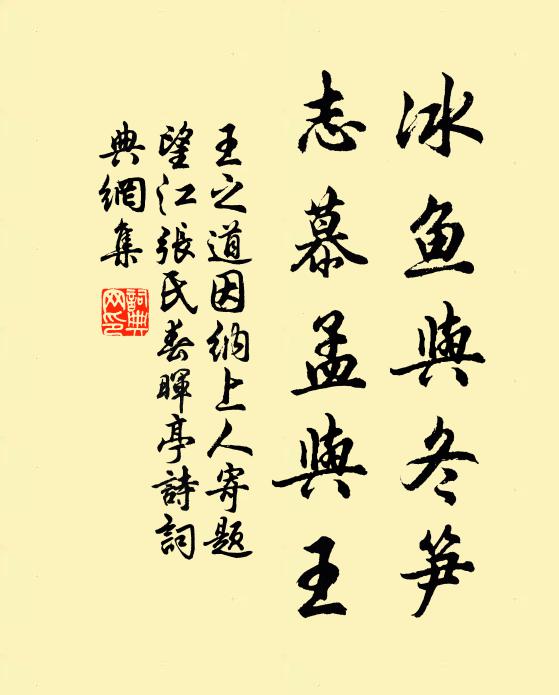 冰鱼與冬笋
志慕孟與王
王之道因纳上人寄题
望江張氏春暉亭詩詞
典網集
詞典網印